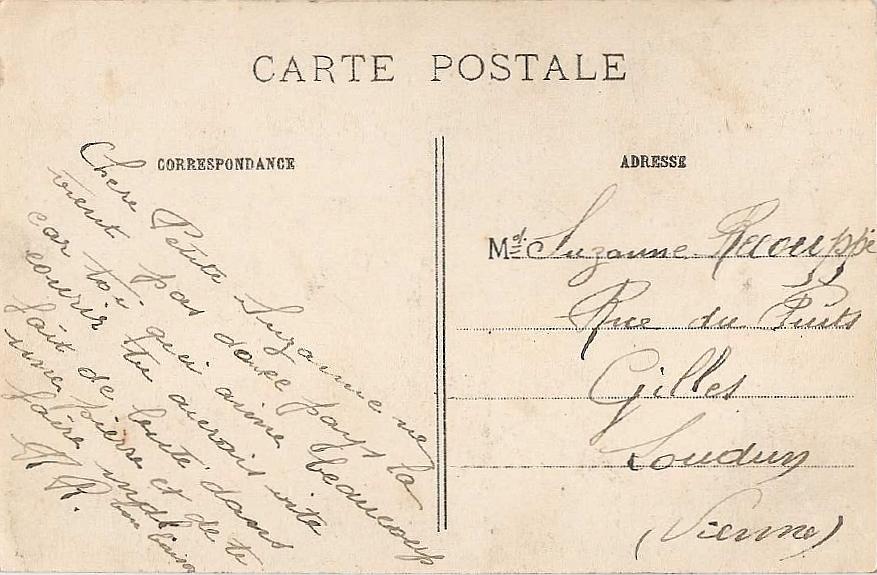 CARTE POSTALE
CORRESPONDANCE
Chere Petite Suzanne ne
vient pas dans ce pays la
car toi qui aime beaucoup
courir tu aurais vite
fait de bute dans
une pierre et de te
faire mal
bon baiser
R.
ADRESSE
Mlle Suzanne
Rue du Puits
Gilles
Loudun
(Vienne)